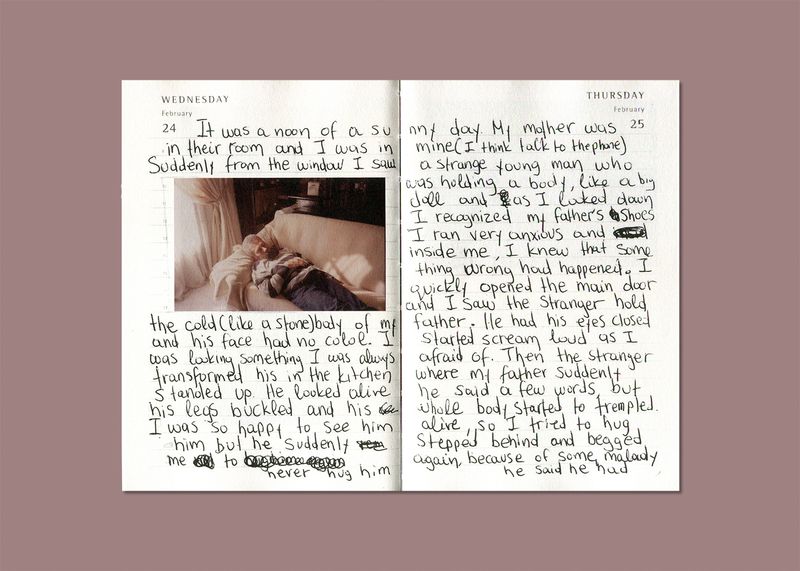 WEDNESDAY
February
24
THURSDAY
February
25
It was a noon of a sunny day. My mother was
in their room and I was in mine (I think talk to the phone)
Suddenly from the window I saw a strange young man who
was holding a body, like a big
doll and as I looked down
I recognized my father's shoes
I ran very anxious and
inside me, I knew that some
thing wrong had happened. I
quickly opened the main door
and I saw the stranger hold
the cold (like a stone) body of my father. He had his eyes closed
and his face had no color. I started scream loud as I
was looking something I was always afraid of. Then the stranger
transformed his in the kitchen where my father suddenly
standed up. He looked alive he said a few words, but
his legs buckled and his whole body started to trempled.
I was so happy to see him alive, so I tried to hug
him but he suddenly stepped behind and begged
me to never hug him again, because of some malady
he said he had